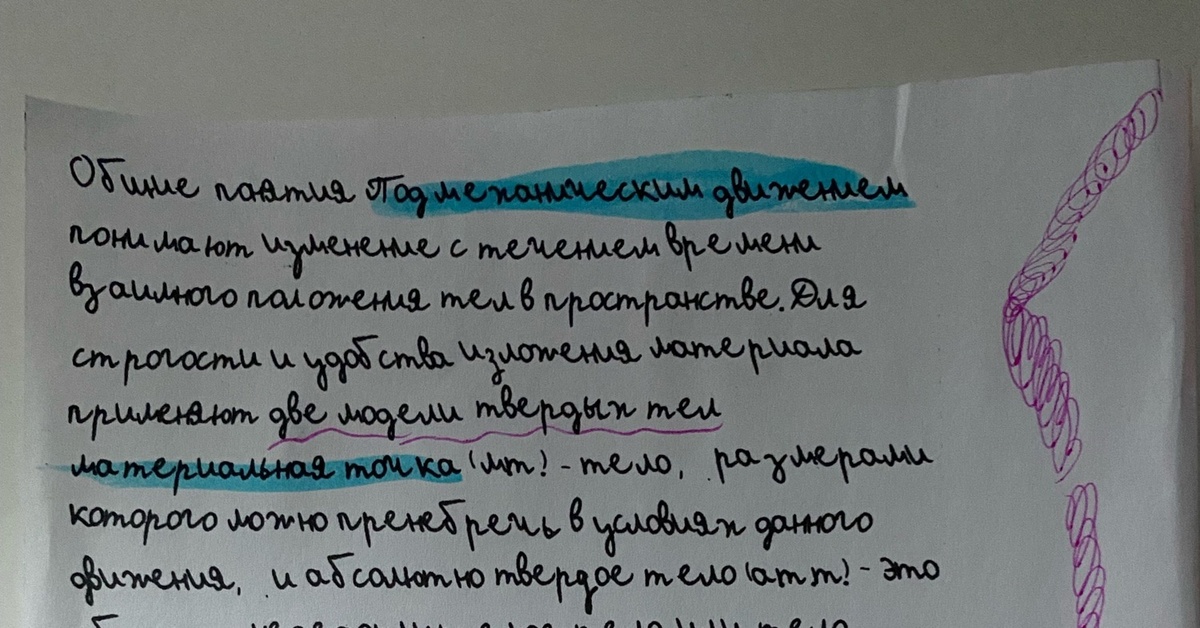 Общие панятия Под механическим движением
понимают изменение с течением времени
взаимного положения тел в пространстве. Для
строгости и удобства изложения материала
применяют две модели твердых тел
материальная точка (мт) - тело, размерами
которого можно пренебречь в условиях данного
движения, и абсолютно твердое тело (атт) - это